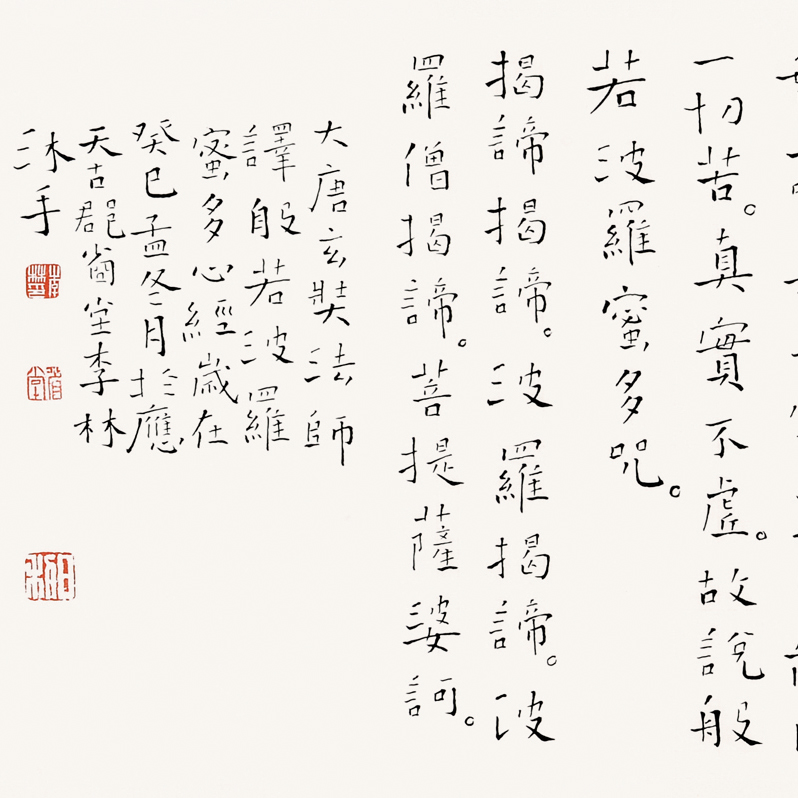 一切苦。真實不虛。故說般
若波羅蜜多咒。
揭諦揭諦。波羅揭諦。波
羅僧揭諦。菩提薩婆訶。
大唐玄奘法師
譯般若波羅
蜜多心經歲在
癸巳孟冬月於應
天古郡堂李林
沐手